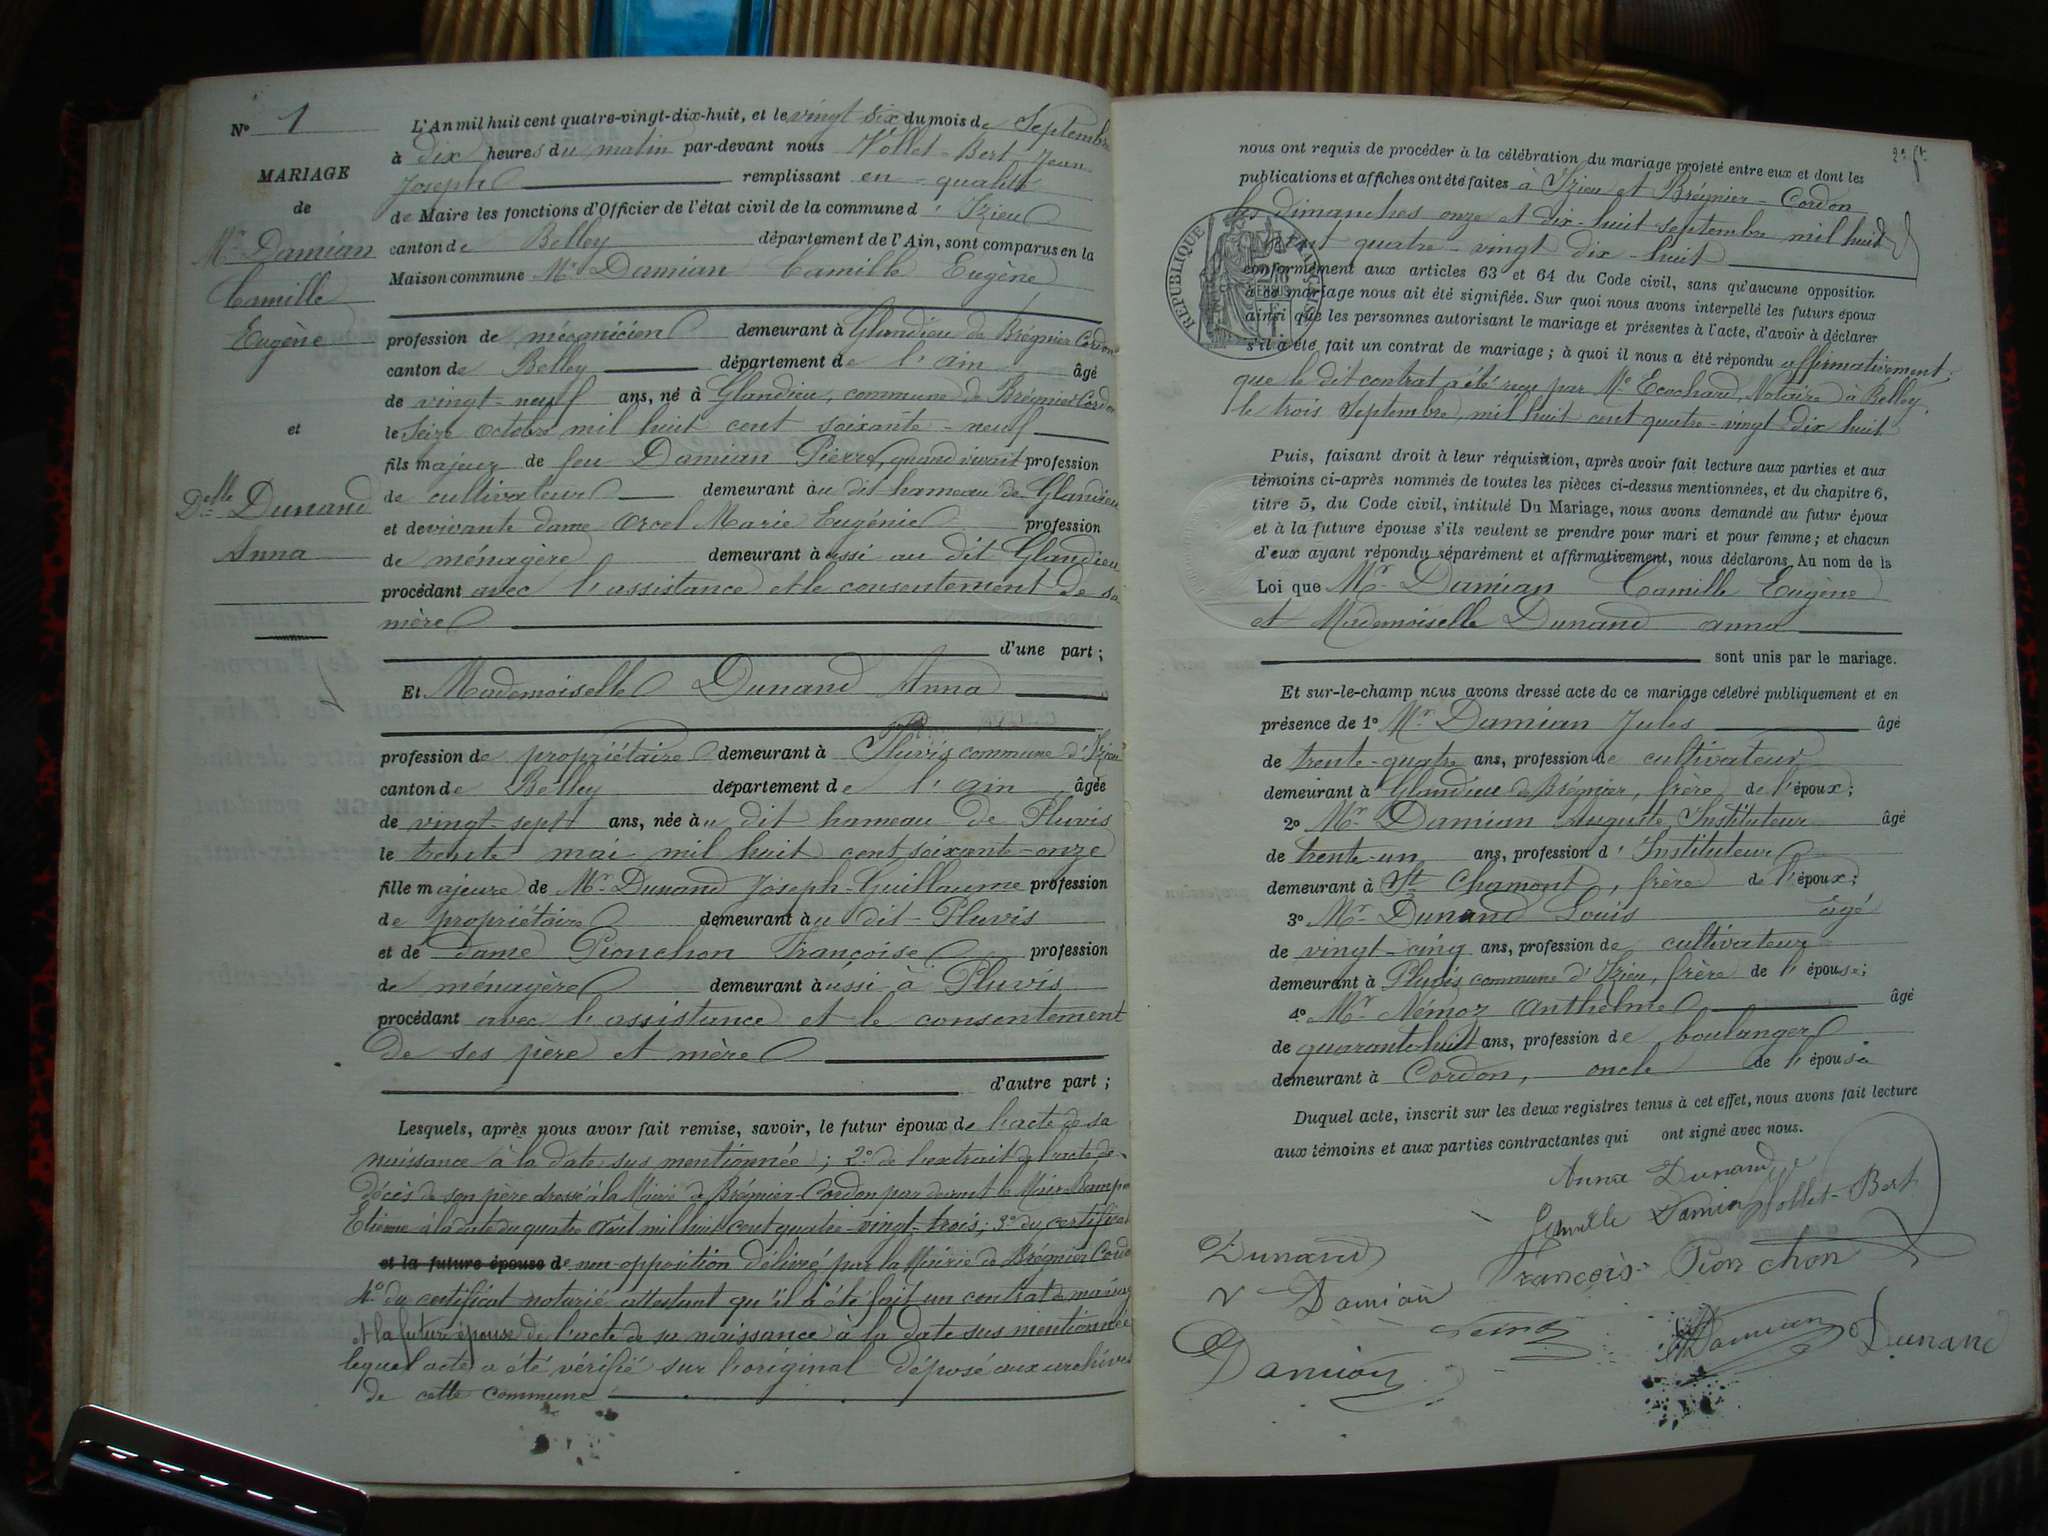 N° 1
MARIAGE
de
Mr Damian
Camille
Eugène
et
Delle Dunand
Anna
L'An mil huit cent quatre-vingt-dix-huit, et le vingt six du mois de Septembre
à dix heures du matin par-devant nous Vollet-Bert Jean
Joseph remplissant en qualité
de Maire les fonctions d'Officier de l'état civil de la commune d'Izieu
canton de Belley département de l'Ain, sont comparus en la
Maison commune Mr Damian Camille Eugène
profession de mécanicien demeurant à Glandieu de Brégnier Cordon
canton de Belley département de l'ain âgé
de vingt-neuf ans, né à Glandieu, commune de Brégnier Cordon
le Seize Octobre mil huit cent soixante-neuf
fils majeur de feu Damian Pierre, quand vivait profession
de cultivateur demeurant au dit hameau de Glandieu
et de vivante dame Orcel Marie Eugénie profession
de ménagère demeurant aussi au dit Glandieu
procédant avec l'assistance et le consentement de sa
mère
d'une part ;
Et Mademoiselle Dunand Anna
profession de propriétaire demeurant à Pluvis commune d'Izieu
canton de Belley département de l'ain âgée
de vingt-sept ans, née au dit hameau de Pluvis
le trente mai mil huit cent soixante-onze
fille majeure de Mr Dunand Joseph-Guillaume profession
de propriétaire demeurant au dit-Pluvis
et de dame Pionchon Françoise profession
de ménagère demeurant aussi à Pluvis
procédant avec l'assistance et le consentement
de ses père et mère
d'autre part ;
Lesquels, après nous avoir fait remise, savoir, le futur époux de l'acte de sa
naissance à la date sus mentionnée ; 2° de l'extrait de l'acte de
décès de son père dressé à la Mairie de Brégnier-Cordon par devant le Maire
Etienne à la date du quatre Août mil huit cent quatre-vingt-trois ; 3° du certificat
et la future épouse de non opposition délivré par la Mairie de Brégnier Cordon
4° du certificat notarié attestant qu'il a été fait un contrat de mariage
et la future épouse de l'acte de sa naissance à la date sus mentionnée
lequel acte a été vérifié sur l'original déposé aux archives
de cette commune
2e ft
nous ont requis de procéder à la célébration du mariage projeté entre eux et dont les
publications et affiches ont été faites à Izieu et Brégnier-Cordon
les dimanches onze et dix-huit septembre mil huit
cent quatre-vingt dix-huit
RÉPUBLIQUE FRANÇAISE
conformément aux articles 63 et 64 du Code civil, sans qu'aucune opposition
à ce mariage nous ait été signifiée. Sur quoi nous avons interpellé les futurs époux
ainsi que les personnes autorisant le mariage et présentes à l'acte, d'avoir à déclarer
s'il a été fait un contrat de mariage ; à quoi il nous a été répondu affirmativement,
que le dit contrat a été reçu par Me Ecochard, Notaire à Belley,
le trois Septembre, mil huit cent quatre-vingt dix huit
Puis, faisant droit à leur réquisition, après avoir fait lecture aux parties et aux
témoins ci-après nommés de toutes les pièces ci-dessus mentionnées, et du chapitre 6,
titre 5, du Code civil, intitulé Du Mariage, nous avons demandé au futur époux
et à la future épouse s'ils veulent se prendre pour mari et pour femme ; et chacun
d'eux ayant répondu séparément et affirmativement, nous déclarons Au nom de la
Loi que Mr Damian Camille Eugène
et Mademoiselle Dunand anna
sont unis par le mariage.
Et sur-le-champ nous avons dressé acte de ce mariage célébré publiquement et en
présence de 1° Mr Damian Jules âgé
de trente-quatre ans, profession de cultivateur
demeurant à Glandieu de Brégnier, frère de l'époux ;
2° Mr Damian Auguste, Instituteur âgé
de trente-un ans, profession d'Instituteur
demeurant à St Chamont, frère de l'époux ;
3° Mr Dunand Louis âgé
de vingt-cinq ans, profession de cultivateur
demeurant à Pluvis commune d'Izieu, frère de l'épouse ;
4° Mr Némoz Anthelme âgé
de quarante-huit ans, profession de boulanger
demeurant à Cordon, oncle de l'épouse
Duquel acte, inscrit sur les deux registres tenus à cet effet, nous avons fait lecture
aux témoins et aux parties contractantes qui ont signé avec nous.
Anna Dunand
Camille Damian Vollet-Bert
Dunand
François Pionchon
Ve Damian
Damian Dunand
Damian